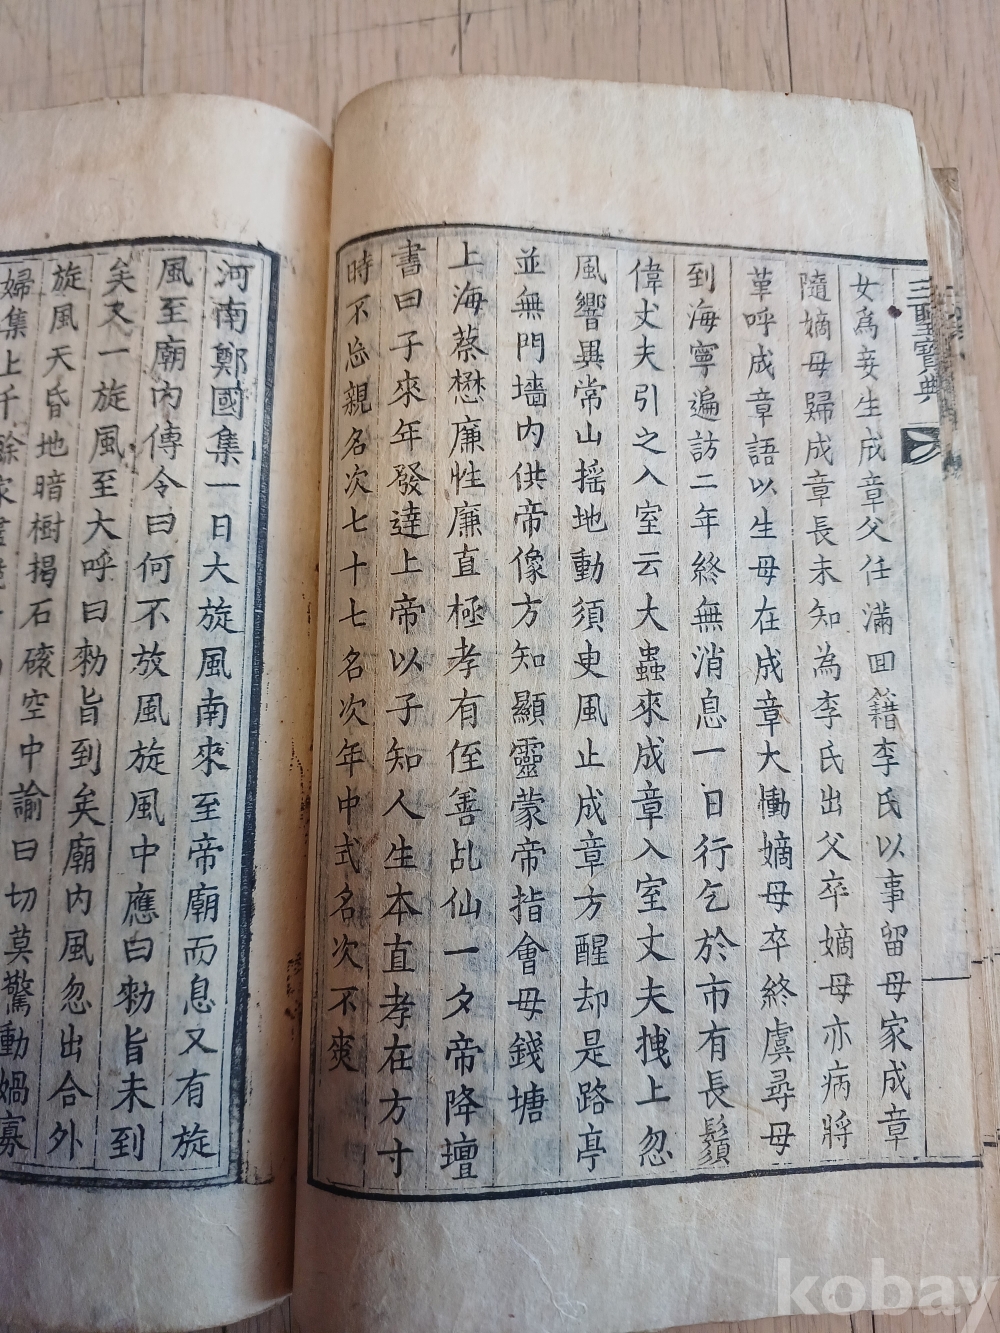 三聖寶典
女爲妾生成章父任滿回籍李氏以事留母家成章
隨嫡母歸成章長未知為李氏出父卒嫡母亦病將
革呼成章語以生母在成章大慟嫡母卒終虞尋母
到海寧遍訪二年終無消息一日行乞於市有長鬚
偉丈夫引之入室云大蟲來成章入室丈夫拽上忽
風響異常山摇地動須臾風止成章方醒却是路亭
並無門墙內供帝像方知顯靈蒙帝指會母錢塘
上海蔡懋廉性廉直極孝有侄善乩仙一夕帝降壇
書曰子來年發達上帝以子知人生本直孝在方寸
時不忘親名次七十七名次年中式名次不爽
河南鄭國集一日大旋風南來至帝廟而息又有旋
風至廟內傳令曰何不放風旋風中應曰勑旨未到
矣又一旋風至大呼曰勑旨到矣廟內風忽出合外
旋風天昏地暗樹揭石磙空中諭曰切莫驚動媧寡
婦集上千餘家
kobay